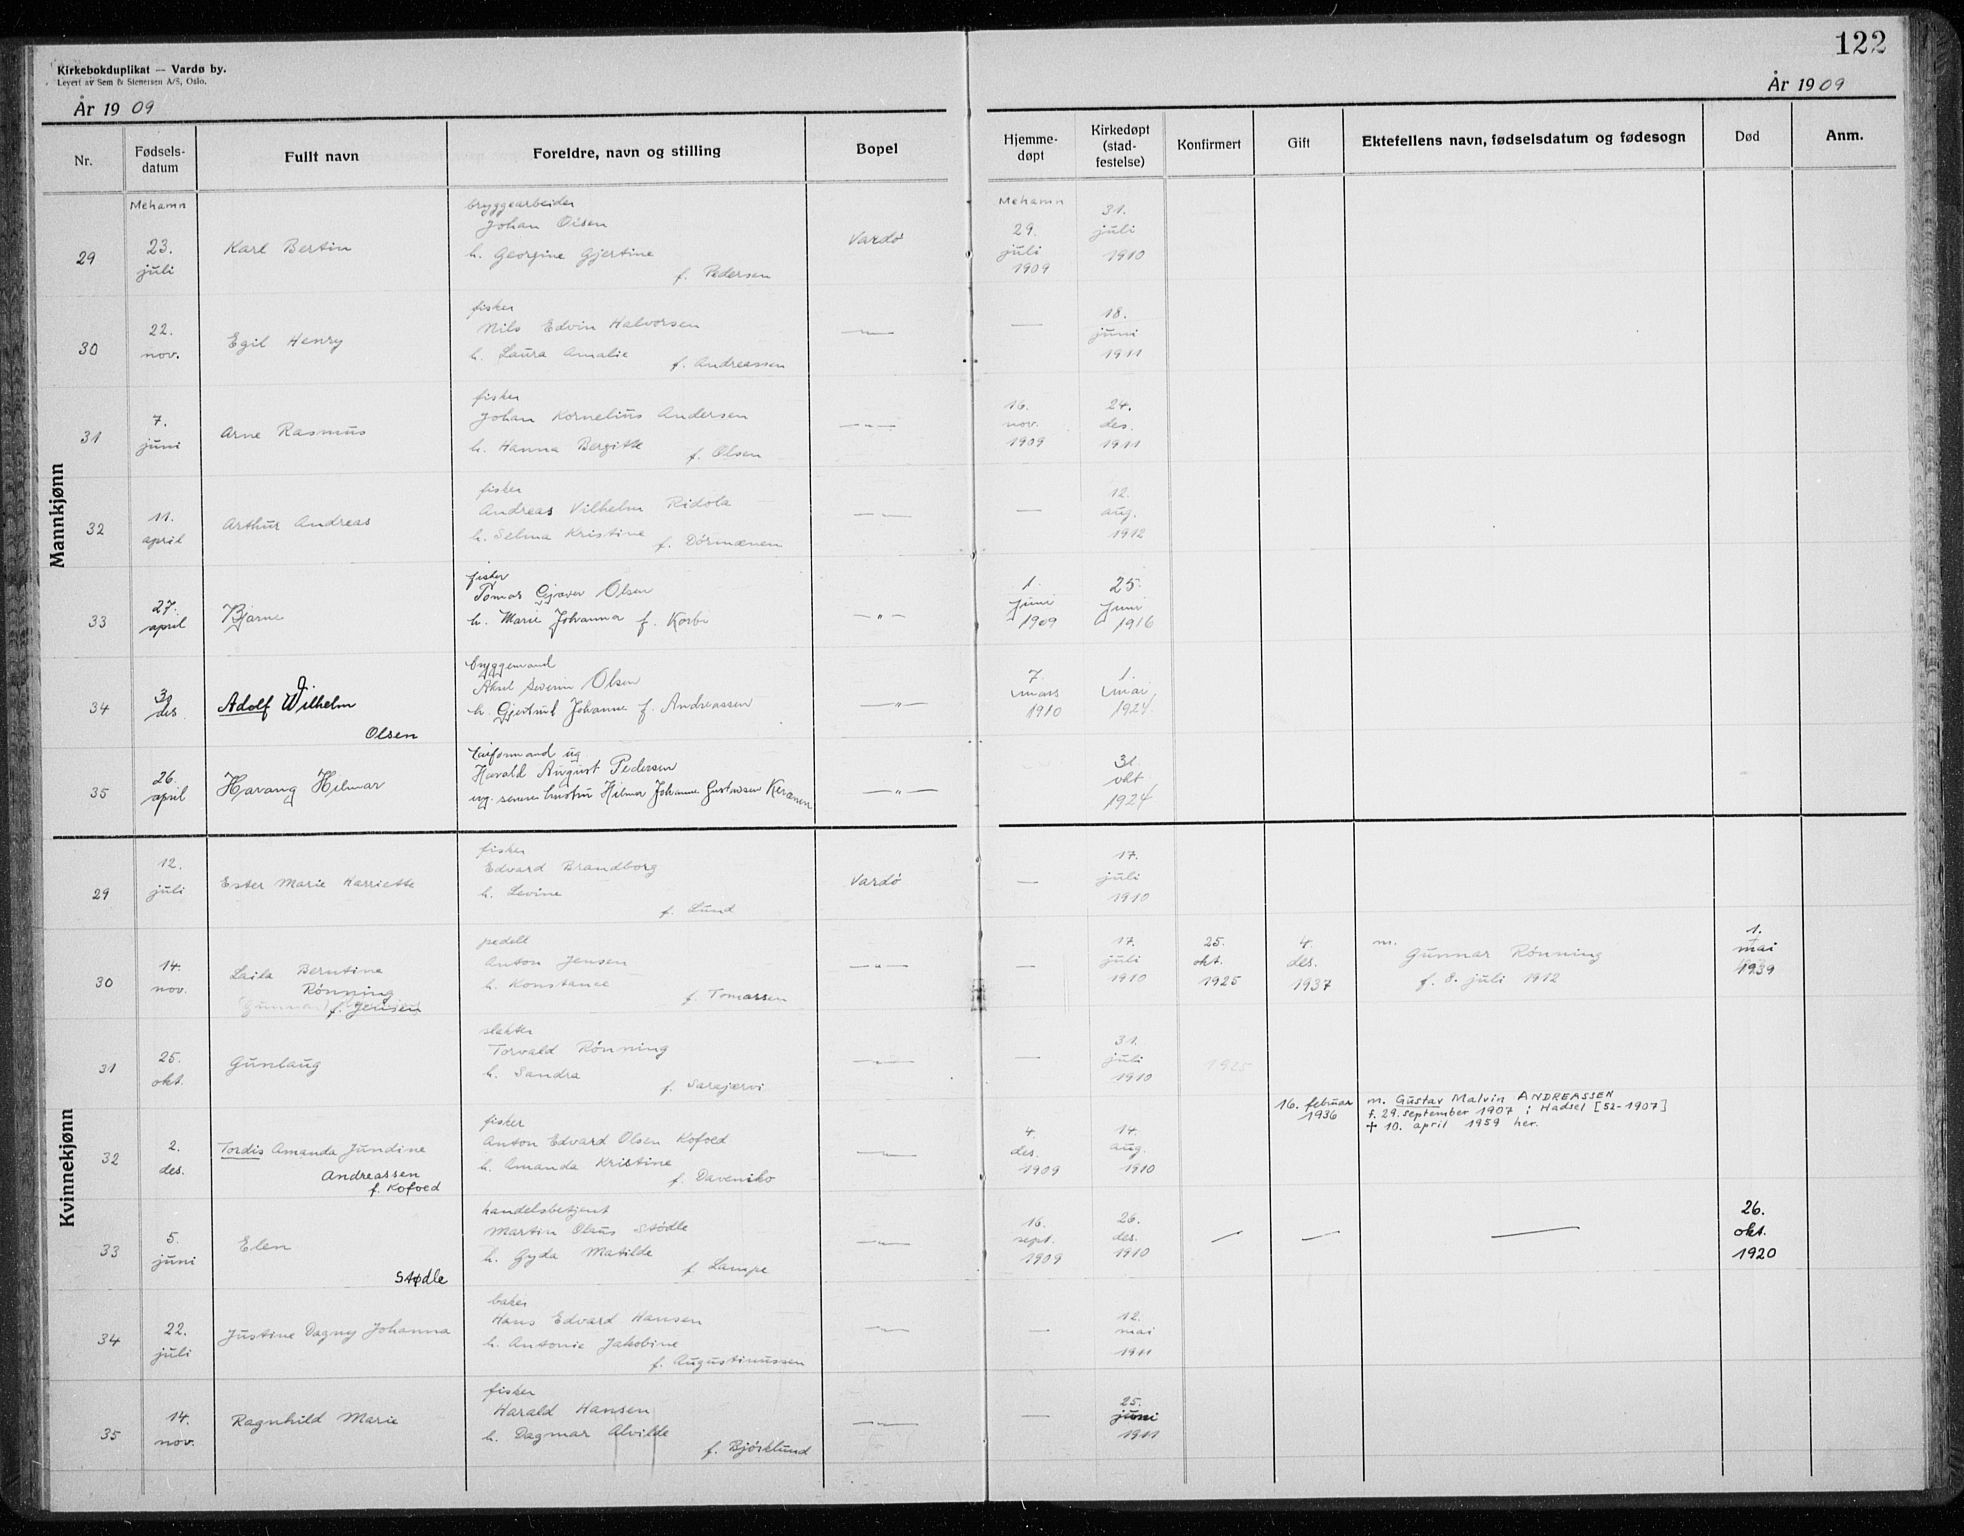 122
Kirkebokduplikat — Vardø by.
Levert av Sem & Stenersen A/S, Oslo.
År 1909
År 1909
Nr. Fødsels-datum Fullt navn Foreldre, navn og stilling Bopel Hjemme-døpt Kirkedøpt (stad-festelse) Konfirmert Gift Ektefellens navn, fødselsdatum og fødesogn Død Anm.
Mannkjønn
Mehamn
29 23. juli Karl Bertin
bryggearbeider
Johan Olsen
h. Georgine Gjertine
f. Pedersen
Vardø
Mehamn
29. juli 1909
31. juli 1910
30 22. nov. Egil Henry
fisker
Nils Edvin Halvorsen
h. Laura Amalie
f. Andreassen
—"— — 18. juni 1911
31 7. juni Arne Rasmus
fisker
Johan Kornelius Andersen
h. Hanna Bergitte
f. Olsen
—"— 16. nov. 1909 24. des. 1911
32 11. april Arthur Andreas
fisker
Andreas Vilhelm Ridola
h. Selma Kristine
f. Dörmænen
—"— — 12. aug. 1912
33 27. april Bjarne
fisker
Tomas Gjæver Olsen
h. Marie Johanna f. Korbi
—"— 1. juni 1909 25. juni 1916
34 30 des Adolf Wilhelm
Olsen
bryggemand
Aksel Severin Olsen
h. Gjertrud Johanne f. Andreassen
—"— 7. mars 1910 1. mai 1924
35 26. april Havang Hilmar
ug.
Harald August Pedersen
ug. Hilma Johanne Gustavsen Keranen
—"— 31. okt 1924
Kvinnekjønn
29 12. juli Ester Marie Harriette
fisker
Edvard Brandborg
h. Levine
f. Lund
Vardø — 17. juli 1910
30 14. nov. Laila Berntine
Rønning
f. Jensen
pedell
Anton Jensen
h. Konstance
f. Tomassen
—"— — 17. juli 1910 25. okt. 1925 4. des. 1937
m. Gunnar Rønning
f. 8. juli 1912
1. mai 1939
31 25. okt. Gunlaug
slakter
Torvald Rønning
h. Sandra
f. Sarajærvi
—"— — 31. juli 1910 1925
32 2. des. Tordis Amanda Jundine
Andreassen
f. Kofoed
fisker
Anton Edvard Olsen Kofoed
h. Amanda Kristine
f. Daveniko
—"— 4. des. 1909 14. aug. 1910
16. februar 1936
m. Gustav Malvin ANDREASSEN
f. 29. september 1907 i Hadsel [52-1907]
+ 10. april 1959 her.
33 5. juni Elen
Stødle
handelsbetjent
Martin Olaus Stødle
h. Gyda Matilde
f. Lampe
—"— 16. sept. 1909 26. des. 1910 — — — 26. okt. 1920
34 22. juli Justine Dagny Johanna
baker
Hans Edvard Hansen
h. Antonie Jakobine
f. Augustinussen
—"— — 12. mai 1911
35 14. nov. Ragnhild Marie
fisker
Harald Hansen
h. Dagmar Alvilde
f. Björklund
—"— — 25. juni 1911